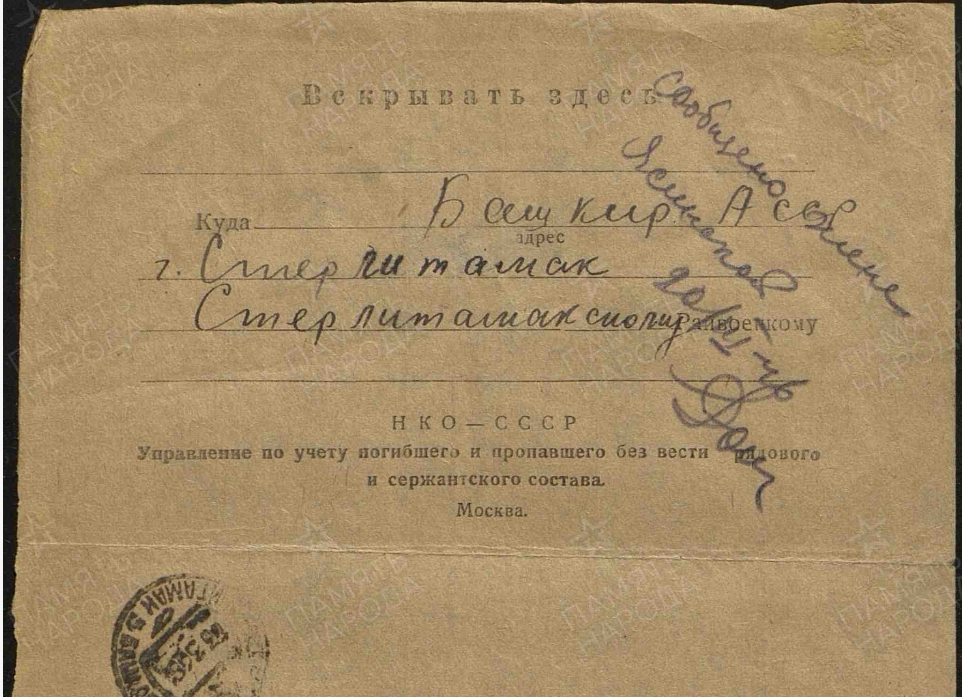 Вскрывать здесь
Куда Башкир АССР
адрес
г. Стерлитамак
Стерлитамакскому Райвоенкому
НКО — СССР
Управление по учету погибшего и пропавшего без вести рядового
и сержантского состава.
Москва.
Сообщено
ПАМЯТЬ
НАРОДА